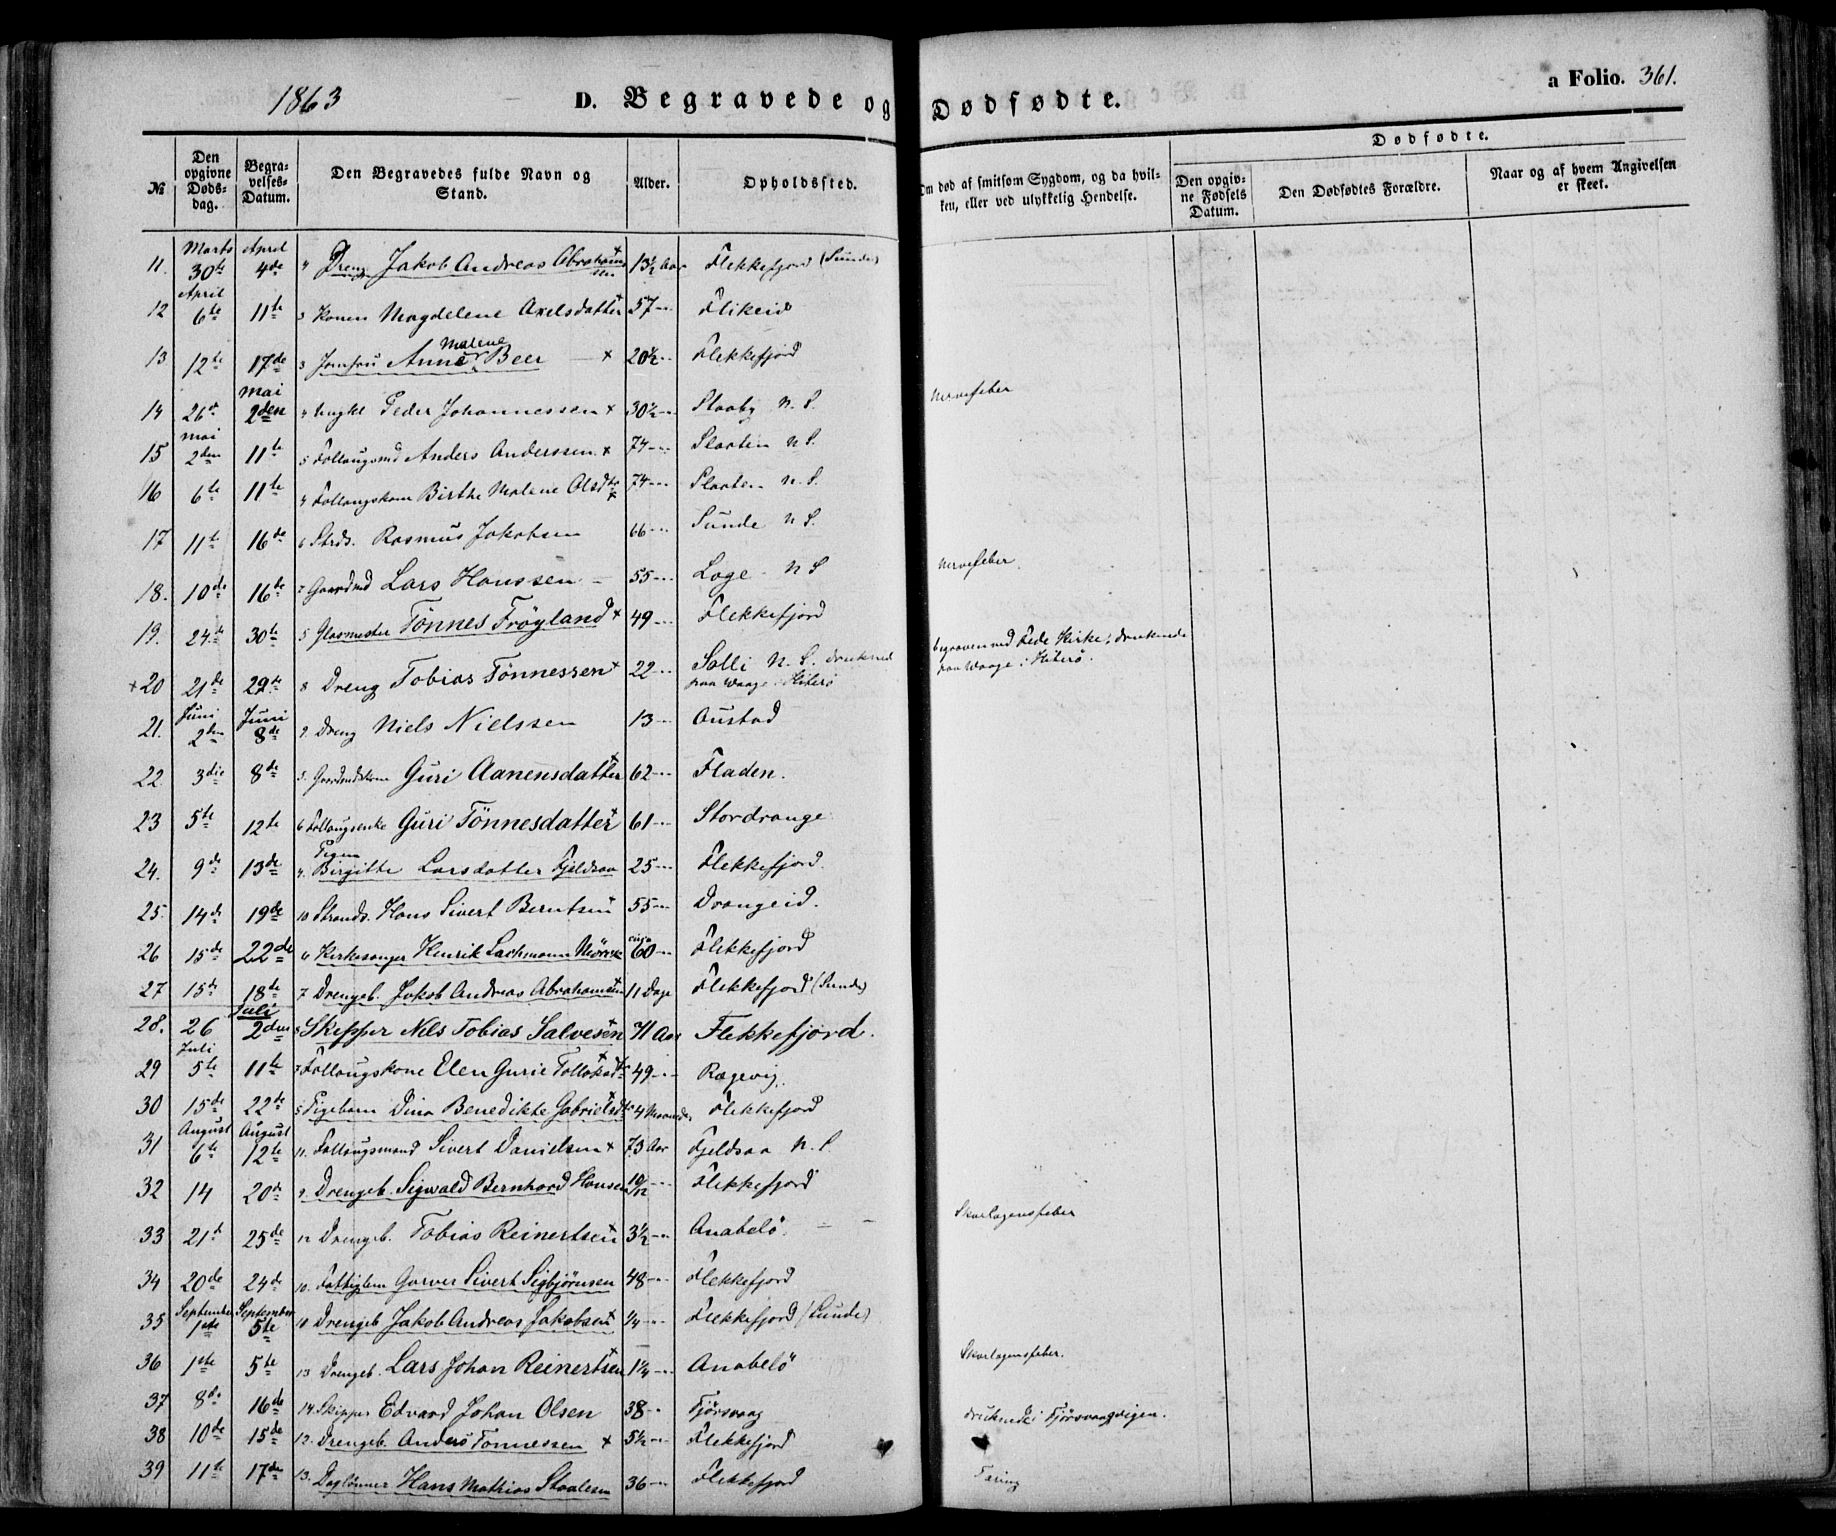 1863
D. Begravede og Dødfødte.
a Folio. 361.
No | Den opgivne Døds-dag. | Begra-velses-Datum. | Den Begravedes fulde Navn og Stand. | Alder. | Opholdssted. | Om død af smitsom Sygdom, og da hvil-ken, eller ved ulykkelig Hendelse. | Dødfødte. Den opgiv-ne Fødsels Datum. | Den Dødfødtes Forældre. | Naar og af hvem Angivelsen er skeet.
11. Marts 30te April 4de 4 Dreng Jakob Andreas Abrahamsen 13½ Aar Flekkefjord (Sunde)
12 April 6te 11te 3 Konen Magdelene Axelsdatter 57 Flikeid
13 12te 17de 3 Jomfru Anne Malene Beer 20½ Flekkefjord
14 26de Mai 2den 4 Ungkl Peder Johannessen 30½ Staaby N. S. Nervefeber
15 Mai 2den 11te 5 Follaugsmd Anders Anderssen 74 Slaaten N S.
16 6te 11te 4 Follaugskone Birthe Malene Olsdtr 74 Slaaten N. S.
17 11te 16de 6 Strds. Rasmus Jakobsen 66 Sunde N S.
18. 10de 16de 7 Gaardmd Lars Hanssen 55 Loge N S Nervefeber.
19. 24de 30te 5 Glasmester Tønnes Frøyland 49 Flekkefjord
20 21de 29de 8 Dreng Tobias Tønnessen 22 Solli N. S. druknet paa Waage i Hiterø begraven ved Fede Kirke; druknede paa Waage i Hiterø.
21. Juni 2den Juni 8de 9. Dreng Niels Nielssen 13 Austad
22 3die 8de 5. Gaardmdskone Guri Aanensdatter 62 Fladen.
23 5te 12te 6 Follaugsenke Guri Tönnesdatter 61 Stordrange
24. 9de 13de 4. Pigen Birgitte Larsdatter Fjeldsaa 25 Flekkefjord.
25. 14de 19de 10 Strands. Hans Sivert Berntsen 55 Drangeid.
26 15de 22de 6 Kirkesanger Henrik Lachmann circa 60 Flekkefjord
27 15de 18de 7 Drengeb. Jakob Andreas Abrahamsen 11 Dage Flekkefjord (Sunde)
28. 26 Juli 2den 8 Skipper Nils Tobias Salvesen 71 Aar Flekkefjord.
29 Juli 5te 11te 7 Follaugskone Elen Gurie 49 Rægevig.
30 15de 22de 8 Pigebarn Dina Benedikte Gabrielsdtr 4 Maaneder Flekkefjord
31 August 6te August 12te 11. Follaugsmand Sivert Danielsen 73 Aar Fjeldsaa N. S.
32 14 20de 9. Drengeb. Sigwald Bernhard Hansen 10/12 Flekkefjord
33 21de 25de 12 Drengeb. Tobias Reinertsen 3½ Anabelö. Skarlagensfeber
34 20de 24de 10. Fattiglem Garver Sivert Sigbjørnsen 48 Flekkefjord
35 September 1ste September 5te 10 Drengeb Jakob Andreas Jakobsen ¼ Flekkefjord (Sunde)
36 1ste 5te 13 Drengeb. Lars Johan Reinertsen 1¼ Anabelö Skarlagensfeber.
37 8de 16de 14 Skipper Edvard Johan Olsen 38 Fjörsvaag druknede i Fjörsvaagvigen.
38 10de 15de 12. Drengeb. Anders Tønnessen 5½ Flekkefjord
39 11te 17de 13. Daglønner Hans Mathias Staalesen 36 Flekkefjord Tæring